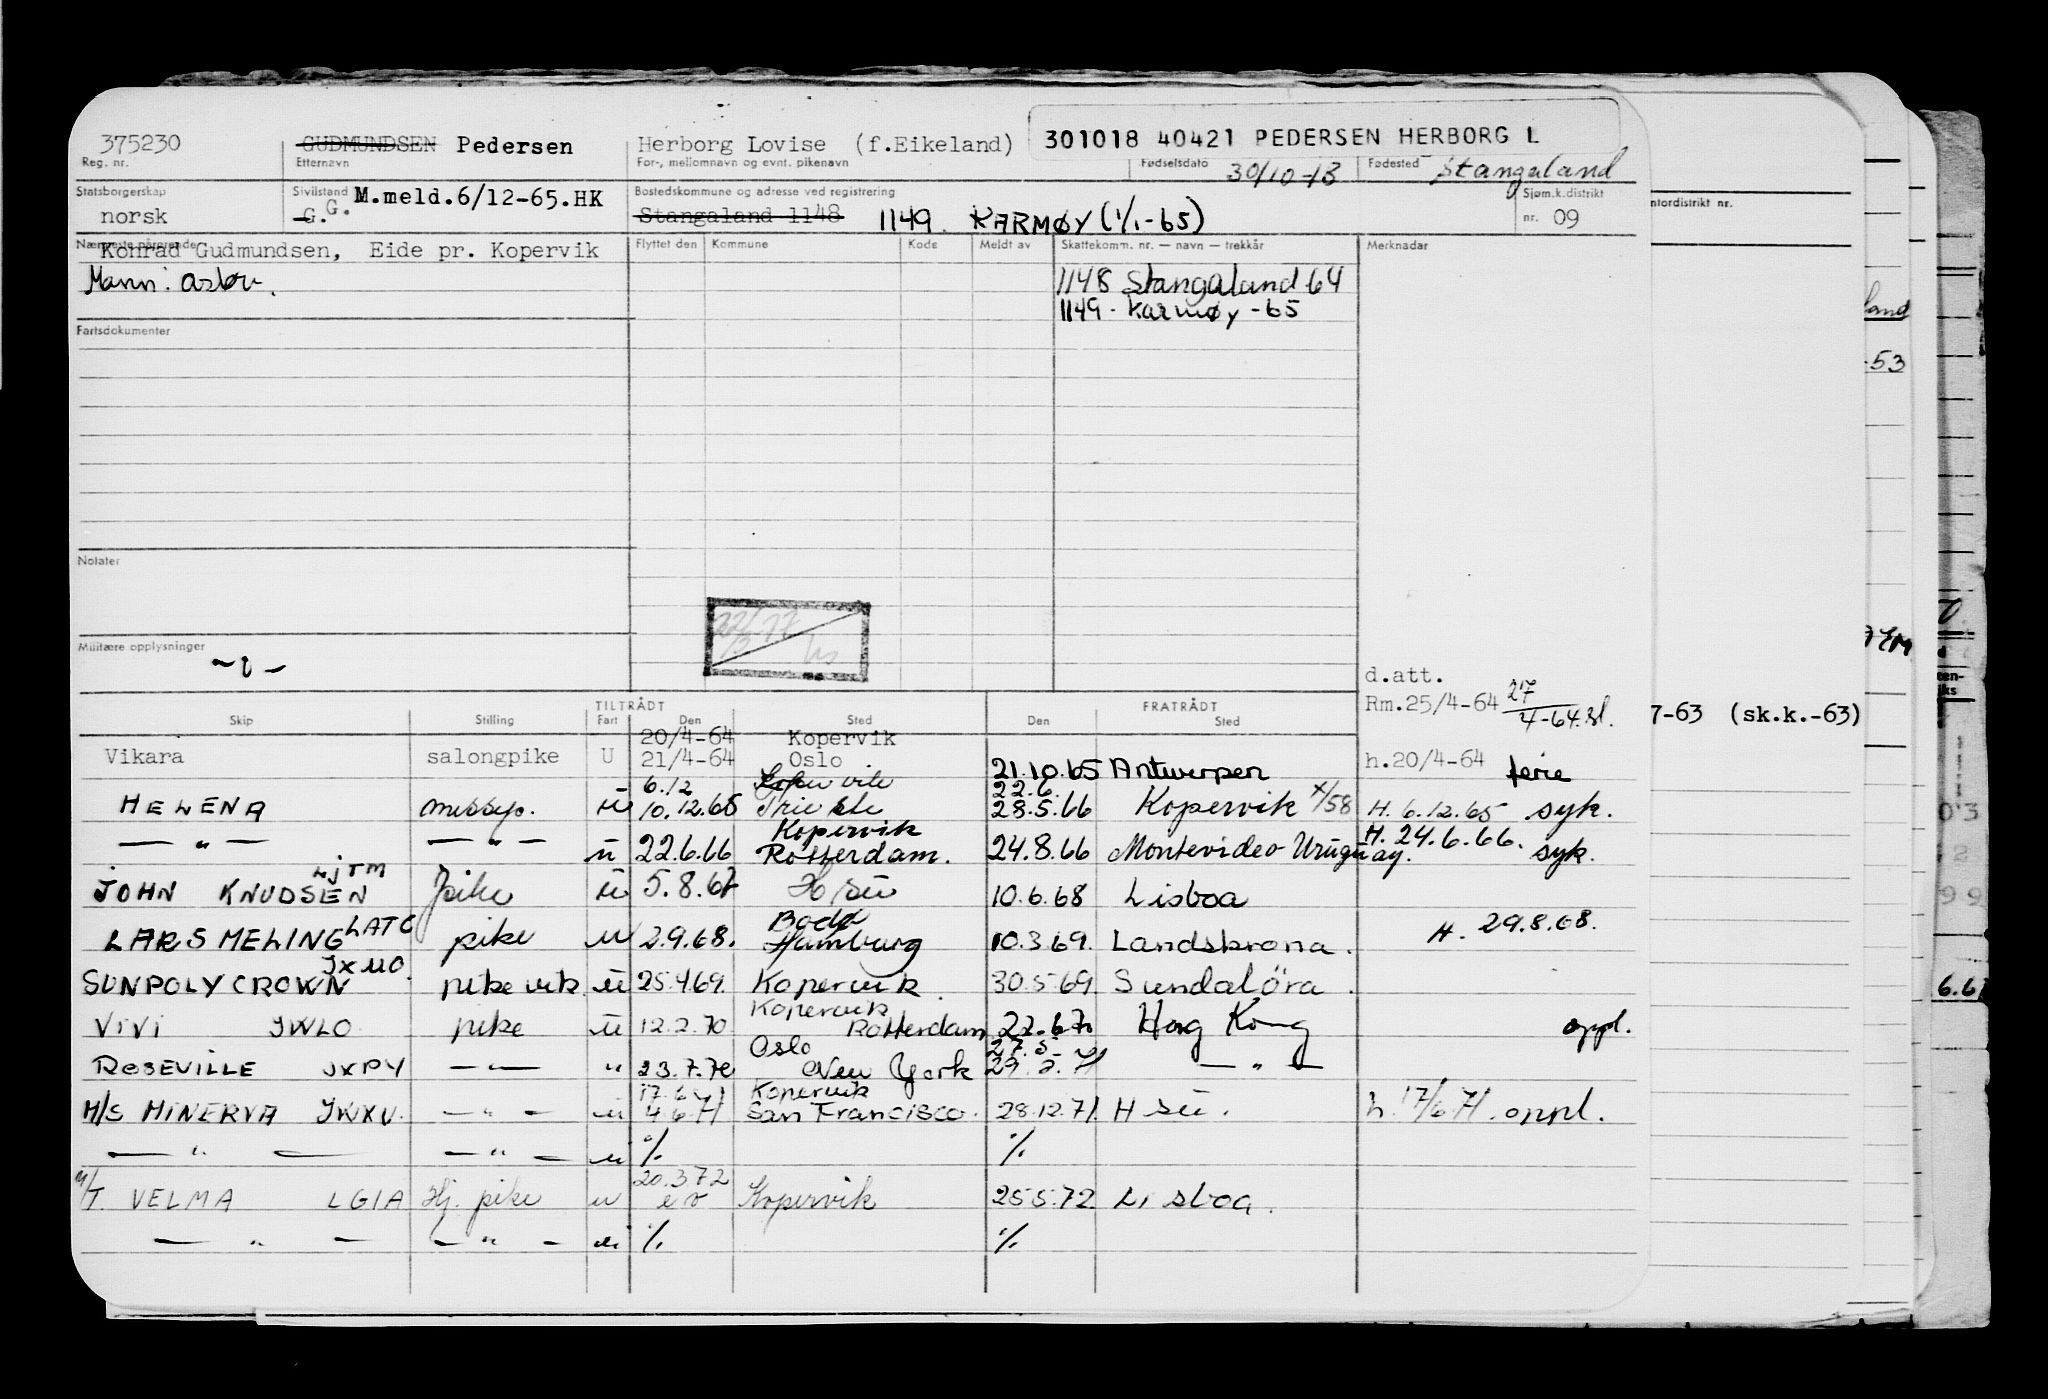 375230 GUDMUNDSEN Pedersen Herborg Lovise (f.Eikeland) 301018 40421 PEDERSEN HERBORG L
Reg. nr. Etternavn For-, mellomnavn og evnt. pikenavn Fødselsdato 30/10-18 Fødested Stangaland
Statsborgerskap Sivilstand M.meld.6/12-65.HK Bostedskommune og adresse ved registrering Sjøm.k.distrikt
norsk G. G. Stangaland 1148 1149 KARMØY (1/1-65) nr. 09
Nærmeste pårørende Flyttet den Kommune Kode Meldt av Skattekomm. nr. — navn — trekkår Merknader
Konrad Gudmundsen, Eide pr. Kopervik
Mann: 1148 Stangaland 64
1149 - Karmøy - 65
Fartsdokumenter
Notater
22/3 77
Militære opplysninger
d.att.
Rm.25/4-64 27/4-64 7-63 (sk.k.-63)
TILTRÅDT FRATRÅDT
Skip Stilling Fart Den Sted Den Sted
20/4-64 Kopervik
Vikara salongpike U 21/4-64 Oslo 21.10.65 Antwerpen h.20/4-64 ferie
6.12 Kopervik 22.6
HELENA messep. u 10.12.65 Trieste 28.5.66 Kopervik x/58 H. 6.12.65 syk.
— " — — " — u 22.6.66 Kopervik Rotterdam. 24.8.66 Montevideo Uruguay. H. 24.6.66. syk.
JOHN KNUDSEN LJTM pike u 5.8.67 H sü 10.6.68 Lisboa
LARS MELING LATC pike u 2.9.68. Bodø Hamburg 10.3.69. Landskrona. H. 29.8.68.
SUNPOLYCROWN JXMO. pike vik u 25.4.69. Kopervik. 30.5.69. Sundalöra.
VIVI JWLO pike u 12.2.70 Kopervik Rotterdam 22.6.70 Hong Kong oppl.
ROSEVILLE JXPY — — " 23.7.70 Oslo New York 27.5 — " —
M/S MINERVA JWXU. — " — u 17.6.71 4.6.71 Kopervik San Francisco. 28.12.71. H sü. h. 17/6 71. oppl.
— " — — " — u % %
M/T. VELMA LGIA Hj. pike u 20.3.72 Kopervik 25.5.72. Lisboa.
— " — — " — u % %